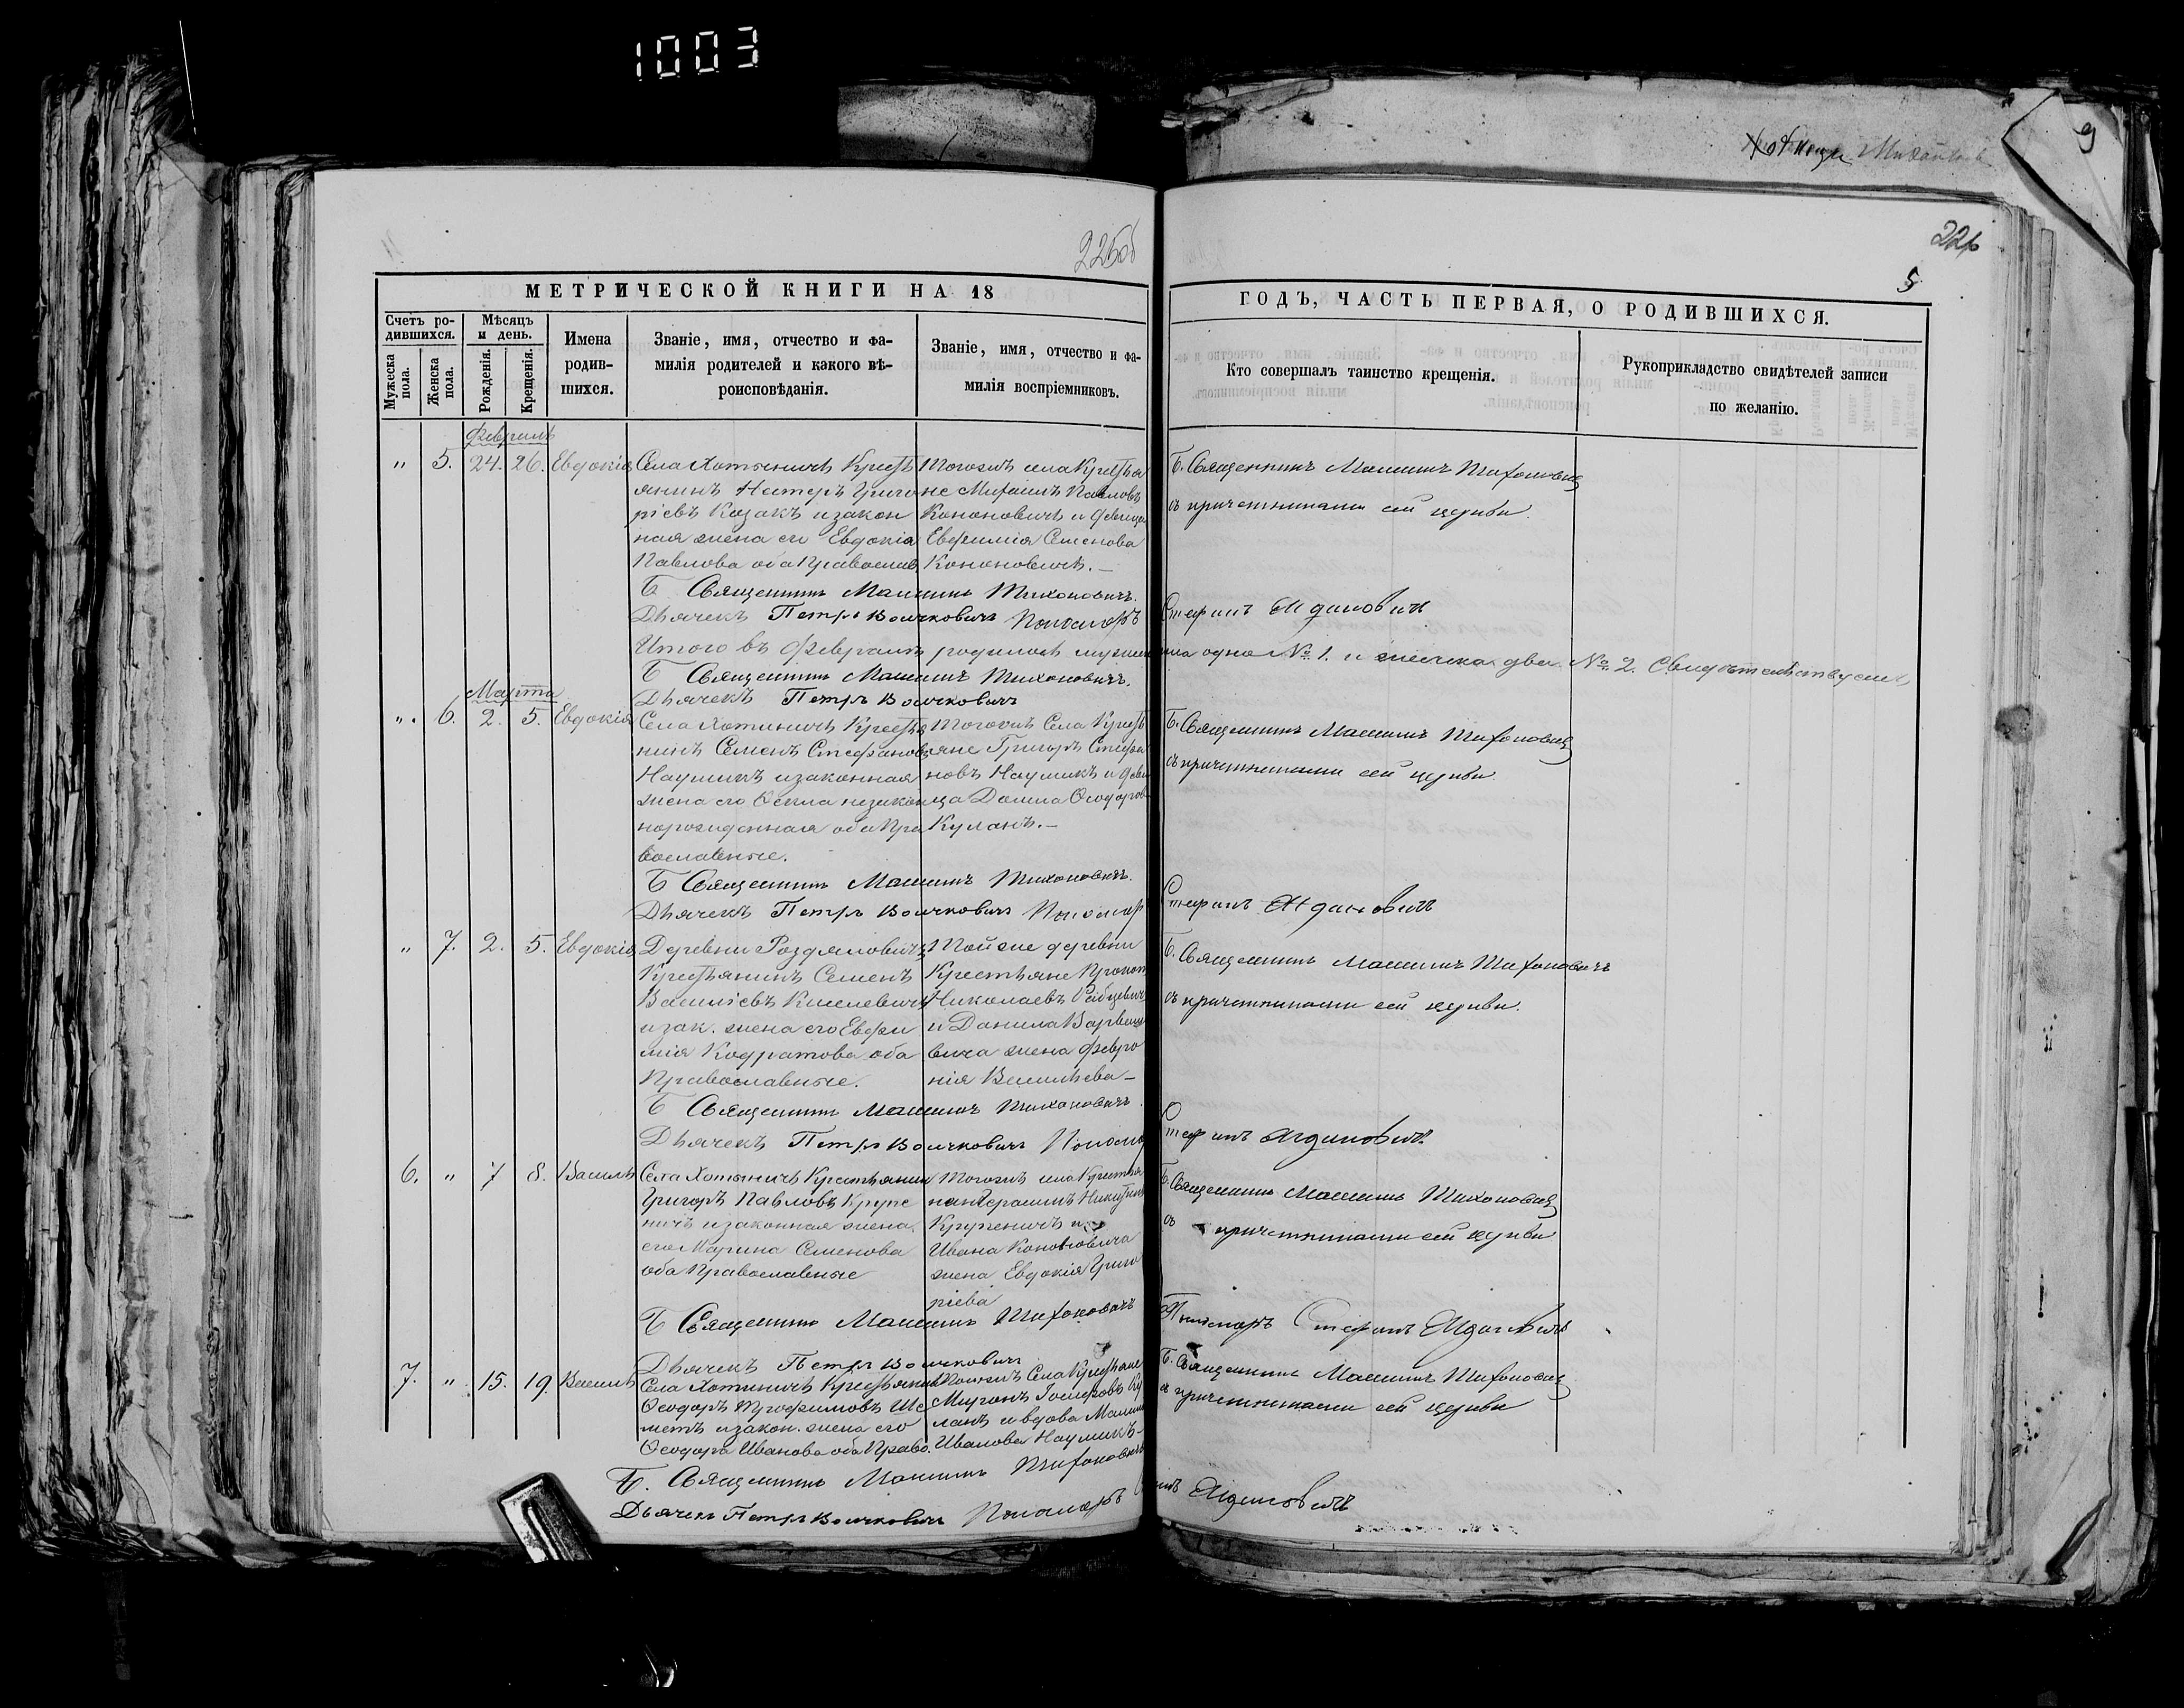 1003
9
Хотиничи
225об
226
5
МЕТРИЧЕСКОЙ КНИГИ НА 18
ГОДЪ, ЧАСТЬ ПЕРВАЯ, О РОДИВШИХСЯ.
Счетъ ро-
дившихся.
Мужеска
пола.
Женска
пола.
Мѣсяцъ
и день.
Рожденія.
Крещенія.
Имена
родив-
шихся.
Званіе, имя, отчество и фа-
милія родителей и какого вѣ-
роисповѣданія.
Званіе, имя, отчество и фа-
милія воспріемниковъ.
Кто совершалъ таинство крещенія.
Рукоприкладство свидѣтелей записи
по желанію.
Февраль
" 5. 24. 26. Евдокія
Села Хотыничъ Крестъ
янинъ Нестеръ Григо
ріевъ Козакъ и закон
ная жена его Евдокія
Павлова оба Православ
Тогожъ села Крестья
не Михаилъ Павловъ
Кононовичъ и девица
Евфимія Семенова
Кононовичъ.—
Б. Священникъ Тихоновичъ
съ причетниками сей церкви.
Б Священникъ Тихоновичъ.
Дьячекъ Петръ Пономарь Стефанъ
Итого въ Февралѣ родилось мужеска пола одно № 1. и женска два № 2. Свидѣтельствуемъ
Б Священникъ Тихоновичъ.
Дьячекъ Петръ
Марта
" . 6. 2. 5. Евдокія
Села Хотиничъ Крестья
нинъ Семенъ Стефановъ
Наумикъ и законная
жена его Ѳекла незакон
норожденная оба Пра
вославные.
Тогожъ Села Кресть
яне Григоръ Стефа
новъ Наумикъ и деви
ца Домна Ѳеодоров
Куланъ.—
Б. Священникъ Тихоновичъ
съ причетниками сей церкви.
Б Священникъ Тихоновичъ.
Дьячекъ Петръ Пономарь Стефанъ
" 7. 2. 5. Евдокія
Деревни Раздяловичъ
Крестьянинъ Семенъ
Василіевъ Киселевичъ
и зак. жена его Евфи
мія Кодратова оба
Православные.
Той же деревни
Крестьяне Прокоп
Николаевъ
и Данила
вича жена Февро
нія Васильева—
Б. Священникъ Тихоновичъ
съ причетниками сей церкви.
Б Священникъ Тихоновичъ.
Дьячекъ Петръ Пономарь Стефанъ
6. " 7 8. Василь
Села Хотыничъ Крестьянин
Григоръ Павловъ Крупе
ничъ и законная жена
его Марина Семенова
оба Православные
Тогожъ села Крестья
нин Герасимъ
Крупеничъ и
Ивана Кононовича
жена Евдокія Григо
ріева
Б. Священникъ Тихоновичъ
съ причетниками сей церкви
Б Священникъ Тихоновичъ Пономарь Стефанъ
Дьячекъ Петръ
7. " 15. 19. Василь
Села Хотиничъ Крестьянин
Ѳеодоръ Трофимовъ Ше
метъ и закон. жена его
Ѳеодора Иванова оба Право.
Тогожъ Села Крестьяне
Миронъ Іосифовъ Ку
ланъ и вдова
Иванова Наумикъ—
Б. Священникъ Тихоновичъ
съ причетниками сей церкви
Б. Священникъ Тихоновичъ
Дьячекъ Петръ Пономарь